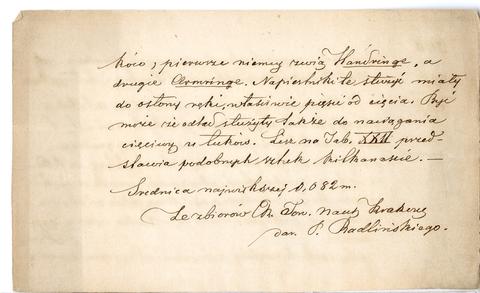 ków; pierwsze niemcy zwią Handringe, a
drugie Armringe. Napiestniki te służyć miały
do osłony ręki, właściwie pięści od cięcia. Być
może zie odtąd służyły także do naciągania
cięciwy u łuków. Lisz na Tab. XXII przed-
stawia podobnych sztuk kilkanaście. —
Średnica największej 0,082 m.
Ze zbiorów Ck. Tow. nauk. Krakow.
dar. P. Radlińskiego.